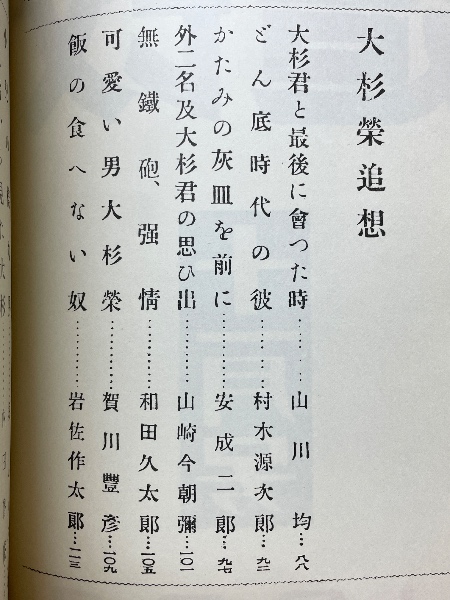 大杉榮追想
大杉君と最後に會つた時………山川均…八八
どん底時代の彼………村木源次郎…九二
かたみの灰皿を前に………安成二郎…九七
外二名及大杉君の思ひ出………山崎今朝彌…一〇一
無鐵砲、强情………和田久太郎…一〇五
可愛い男大杉榮………賀川豐彥…一〇九
飯の食へない奴………岩佐作太郎…一一三